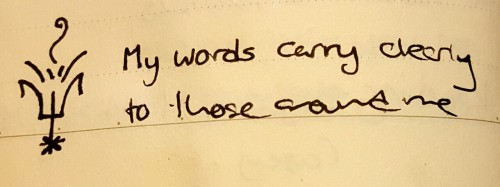 My words carry clearly
to those around me